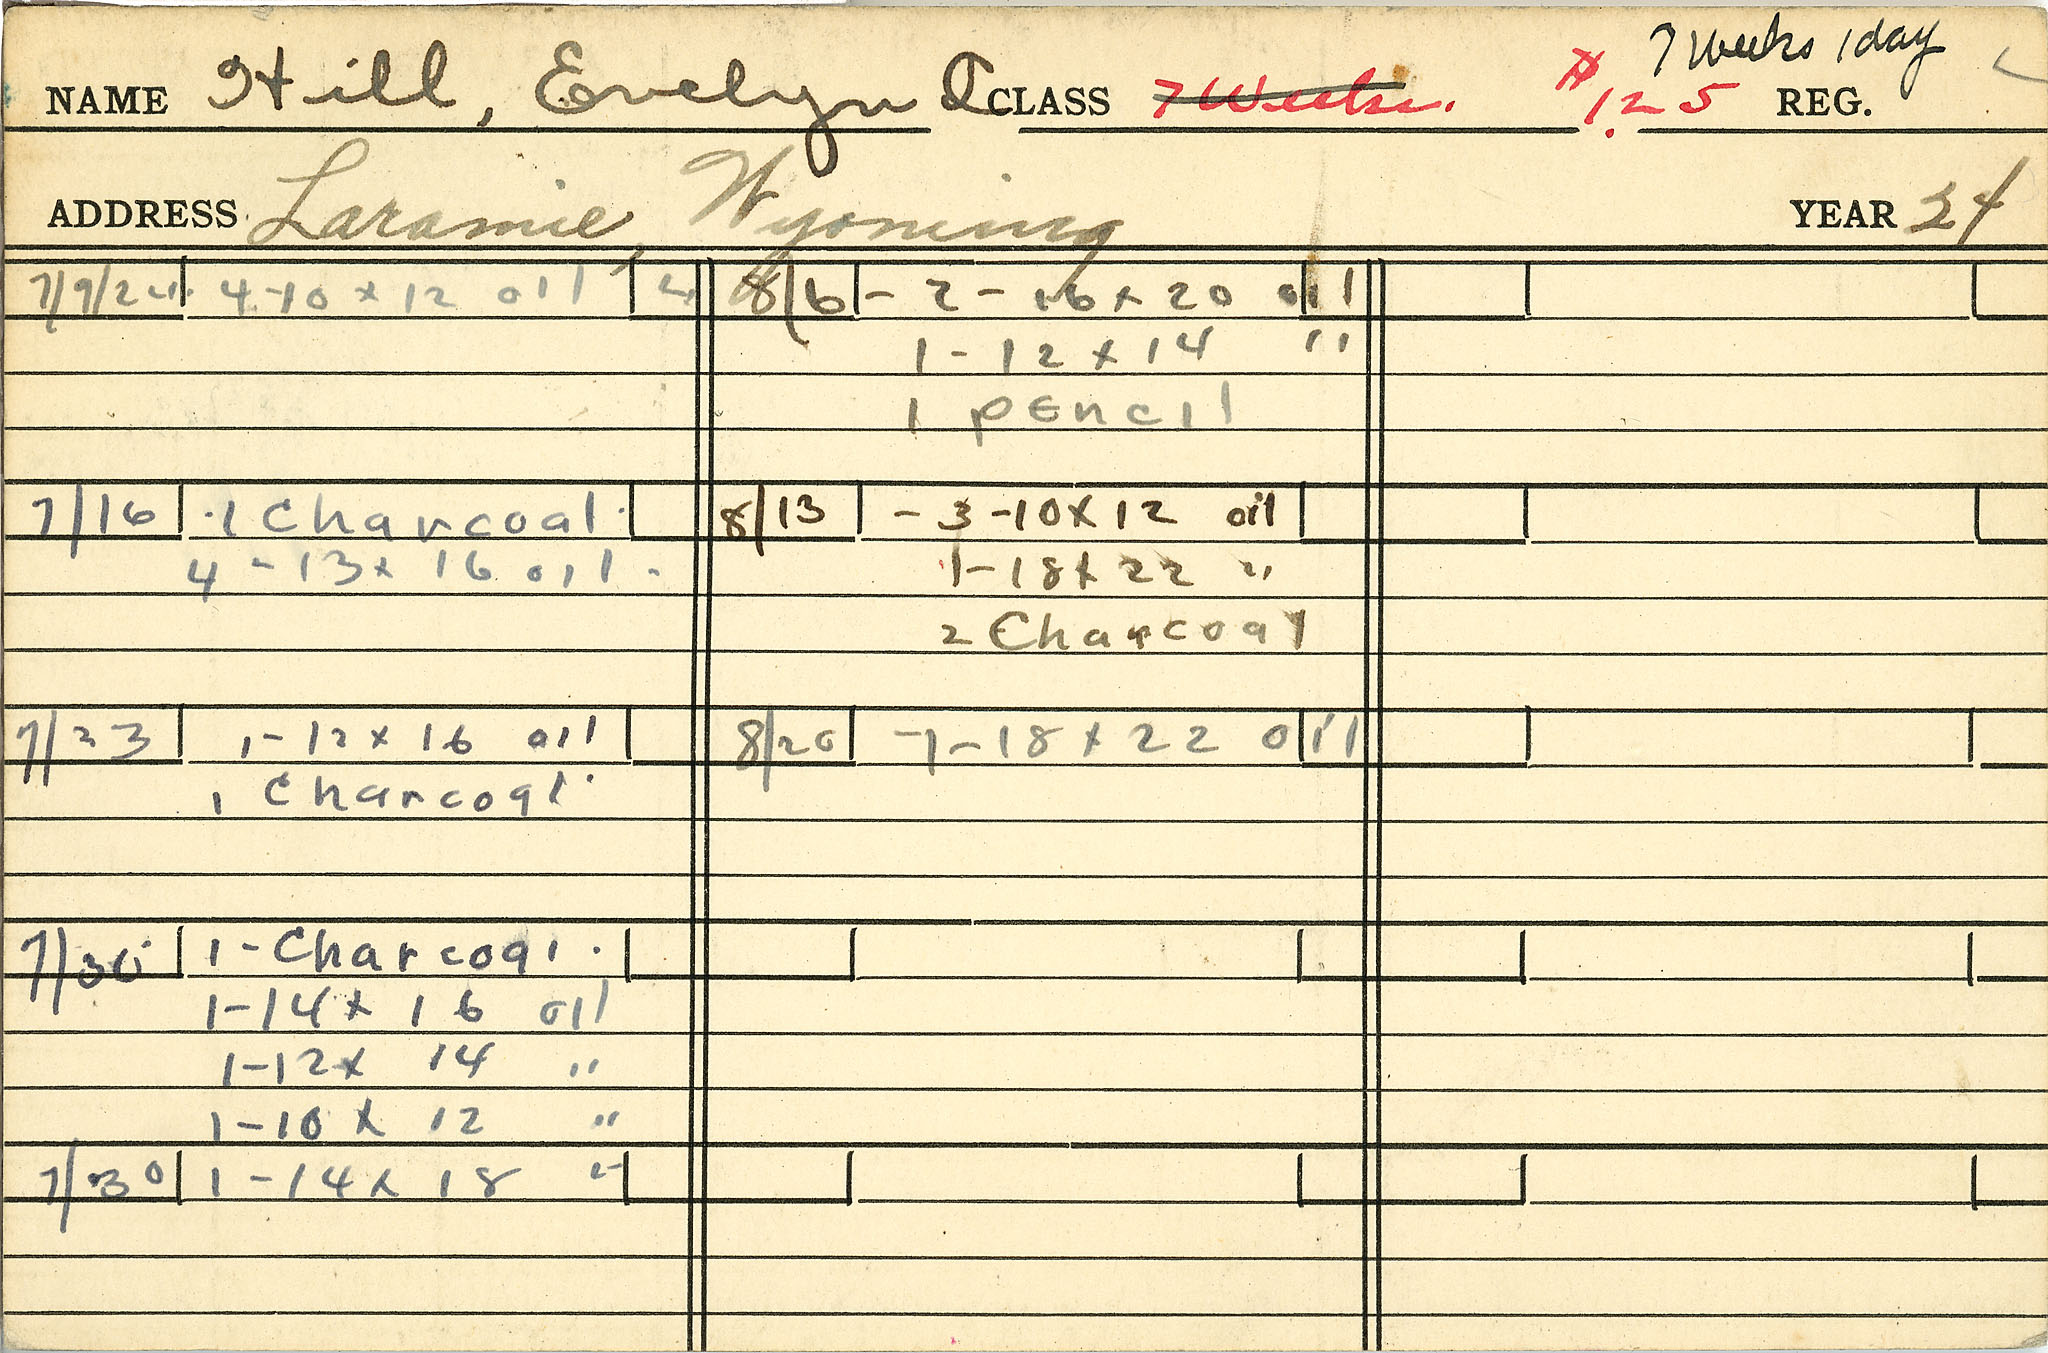 7 Weeks 1 day
NAME Hill, Evelyn CLASS 7 Weeks. $1.25 REG.
ADDRESS Laramie, Wyoming YEAR 24
7/9/24 4-10 x 12 oil 4
7/16 1 Charcoal.
4 - 13 x 16 oil.
7/23 1 - 12 x 16 oil
1 Charcoal.
7/30 1 - Charcoal.
1 - 14 x 16 oil
1 - 12 x 14 "
1 - 10 x 12 "
7/30 1 - 14 x 18 "
8/6 - 2 - 16 x 20 oil
1 - 12 x 14 "
1 pencil
8/13 - 3 - 10 x 12 oil
1 - 18 x 22 "
2 Charcoal
8/20 - 1 - 18 x 22 oil